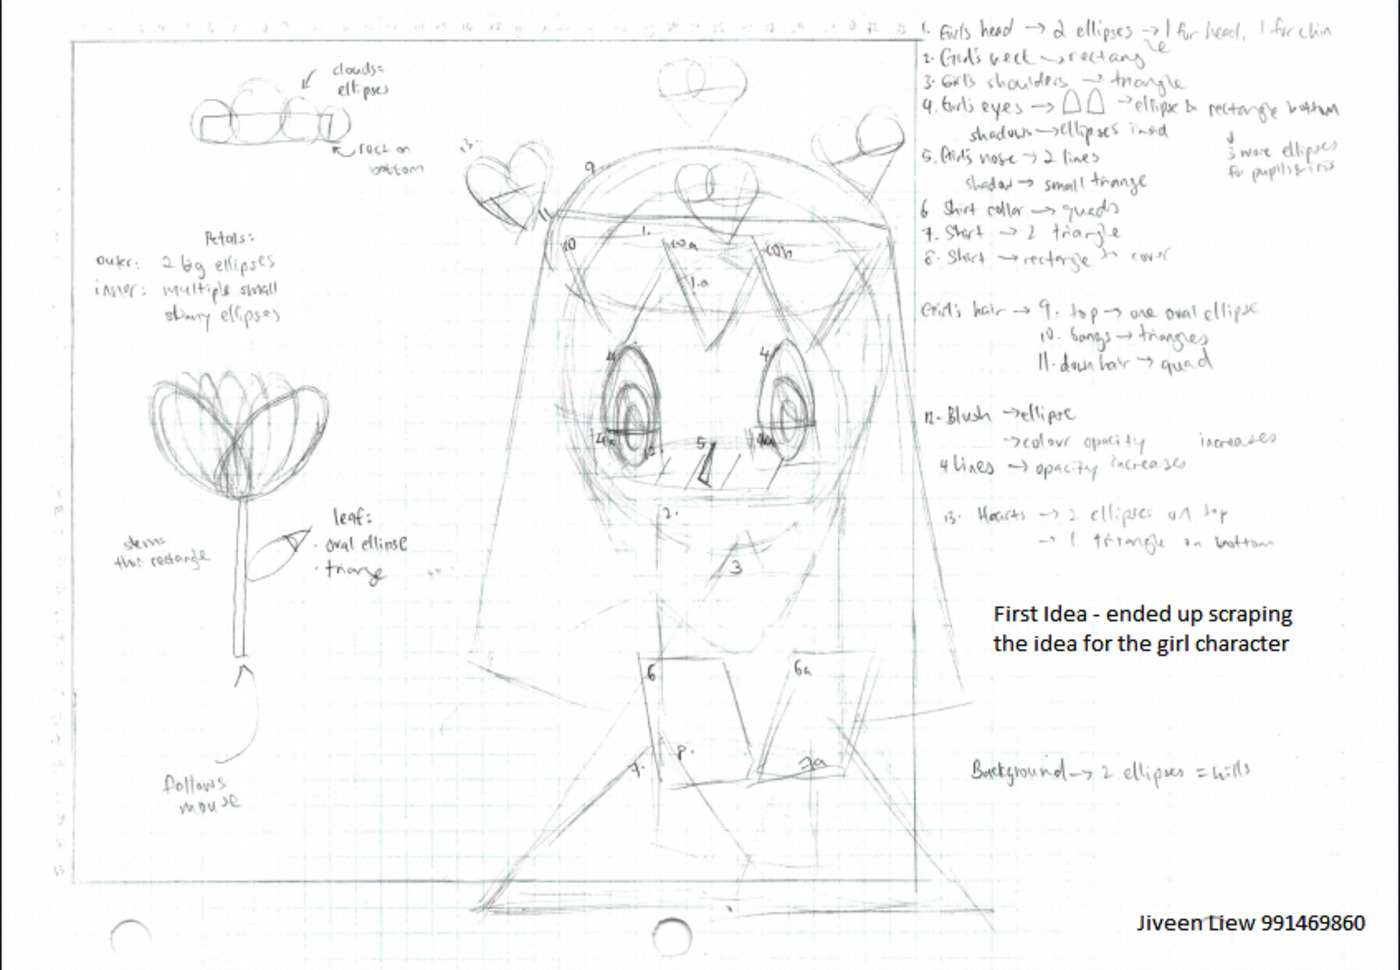 clouds:
ellipses
rect on
bottom
Petals:
outer: 2 big ellipses
inner: multiple small
skinny ellipses
stem:
thin rectangle
leaf:
· oval ellipse
· triange
follows
mouse
13.
9
11
10
1.
10a
10b
1.a
4
4
4a
4a
5
12.
2.
3
6
6a
7.
8.
7a
1. Girls head → 2 ellipses → 1 for head, 1 for chin
2. Girl's neck → rectangle
3. Girl's shoulders → triangle
4. Girl's eyes → → ellipse & rectangle bottom
shadows → ellipses insid
↓
3 more ellipses
for pupils & iris
5. Girl's nose → 2 lines
shadow → small triange
6 Shirt collar → quads
7. Shirt → 2 triangle
8. Shirt → rectangle to cover
Girl's hair → 9. top → one oval ellipse
10. bangs → triangles
11. down hair → quad
12. Blush → ellipse
→ colour opacity increases
4 lines → opacity increases
13. Hearts → 2 ellipses on top
→ 1 triangle on bottom
First Idea - ended up scraping
the idea for the girl character
Background → 2 ellipses = hills
Jiveen Liew 991469860